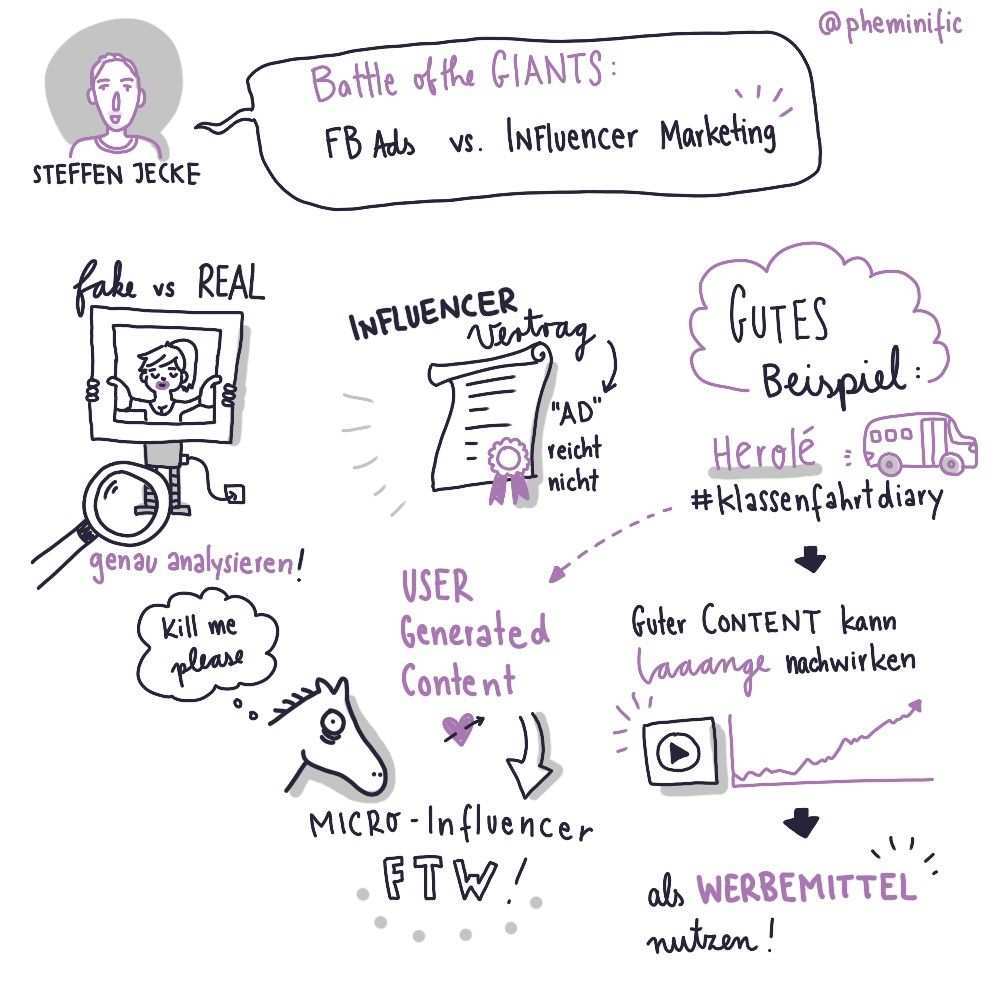 @pheminific
Battle of the GIANTS:
FB Ads vs. INFluencer Marketing
STEFFEN JECKE
fake vs REAL
genau analysieren!
INFLUENCER
Vertrag
"AD"
reicht
nicht
GUTES
Beispiel:
Herolé
#klassenfahrtdiary
Guter CONTENT kann
laaange nachwirken
als WERBEMITTEL
nutzen!
USER
Generated
Content
Kill me
please
MICRO-Influencer
FTW!